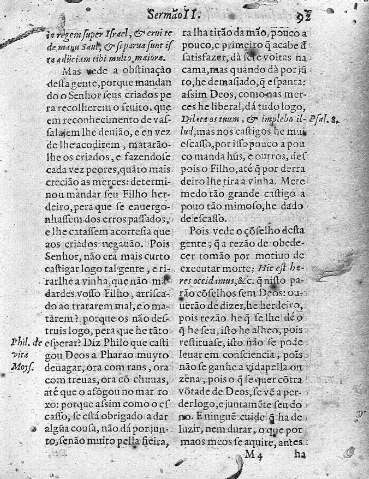 Sermão II. 92
in regem super Israel, & erui te
de manu Saul, & si parva sunt is
ta adiiciam tibi multo maiora.
Mas vede a obstinação
desta gente, porque mandan
do o Senhor seus criados pe
ra recolherem o fruito, que
em reconhecimento de vas
salajem lhe deuião, e en vez
de lhe acodirem, matarão-
lhe os criados, e fazendose
cada vez peores, quãto mais
crecião as merces: determi
nou mandar seu Filho her
deiro, pera que se enuergo-
nhassem dos erros passados,
e lhe catassem a cortesia que
aos criados negauão. Pois
Senhor, não era mais curto
castigar logo tal gente, e ti-
rarlhe a vinha, que não mã
dardes vosso Filho, arrisca-
do ao tratarem mal, e o ma
tàrem? porque os não des-
truis logo, pera que he tãto
esperar? Diz Philo que casti
gou Deos a Pharao muyto
deuagar, ora com rans, ora
com treuas, ora cõ chuuas,
atè que o afogou no mar ro
xo: porque assim como o es-
casso, se està obrigado a dar
algũa cousa, não dá por jun-
to, senão muito pella fieira,
Phil. de
vita
Moys.
ra lha tirão da mão, pouco a
pouco, e primeiro q̃ acabe d̃
satisfazer, dà sete voltas na
cama, mas quando dá por jũ
to, he demasiado, q̃ espanta:
assim Deos, como nas mer-
ces he liberal, dá tudo logo,
Dilata os tuum, & implebo il-
lud, mas nos castigos he mui
escasso, por isso pouco a pou
co manda hũs, e outros, de-
pois o Filho, atè q̃ por derra
deiro lhe tira a vinha. Mere
me do tão grande castigo a
pouo tão mimoso, he dado
de escasso.
Psal. 8.
Pois vede o cõselho desta
gente; q̃ a rezão de obede-
cer tomão por motiuo de
executar morte: Hic est he-
res occidamus, &c. q̃ nisto pa-
rão cõselhos sem Deos: ou-
uerão de dizer, he herdeiro,
pois rezão he q̃ se lhe dè o
q̃ he seu, isto he alheo, pois
restituase, isto não se pode
leuar em consciencia, pois
não se ganhe a vida pella on
zena, pois o q̃ se quer cõtra
võtade de Deos, se vè a per-
der logo, e juntamẽte seu do
no. E ninguẽ cuide q̃ ha de
luzir, nem durar, o que por
maos meos se aquire, antes
M 4 ha